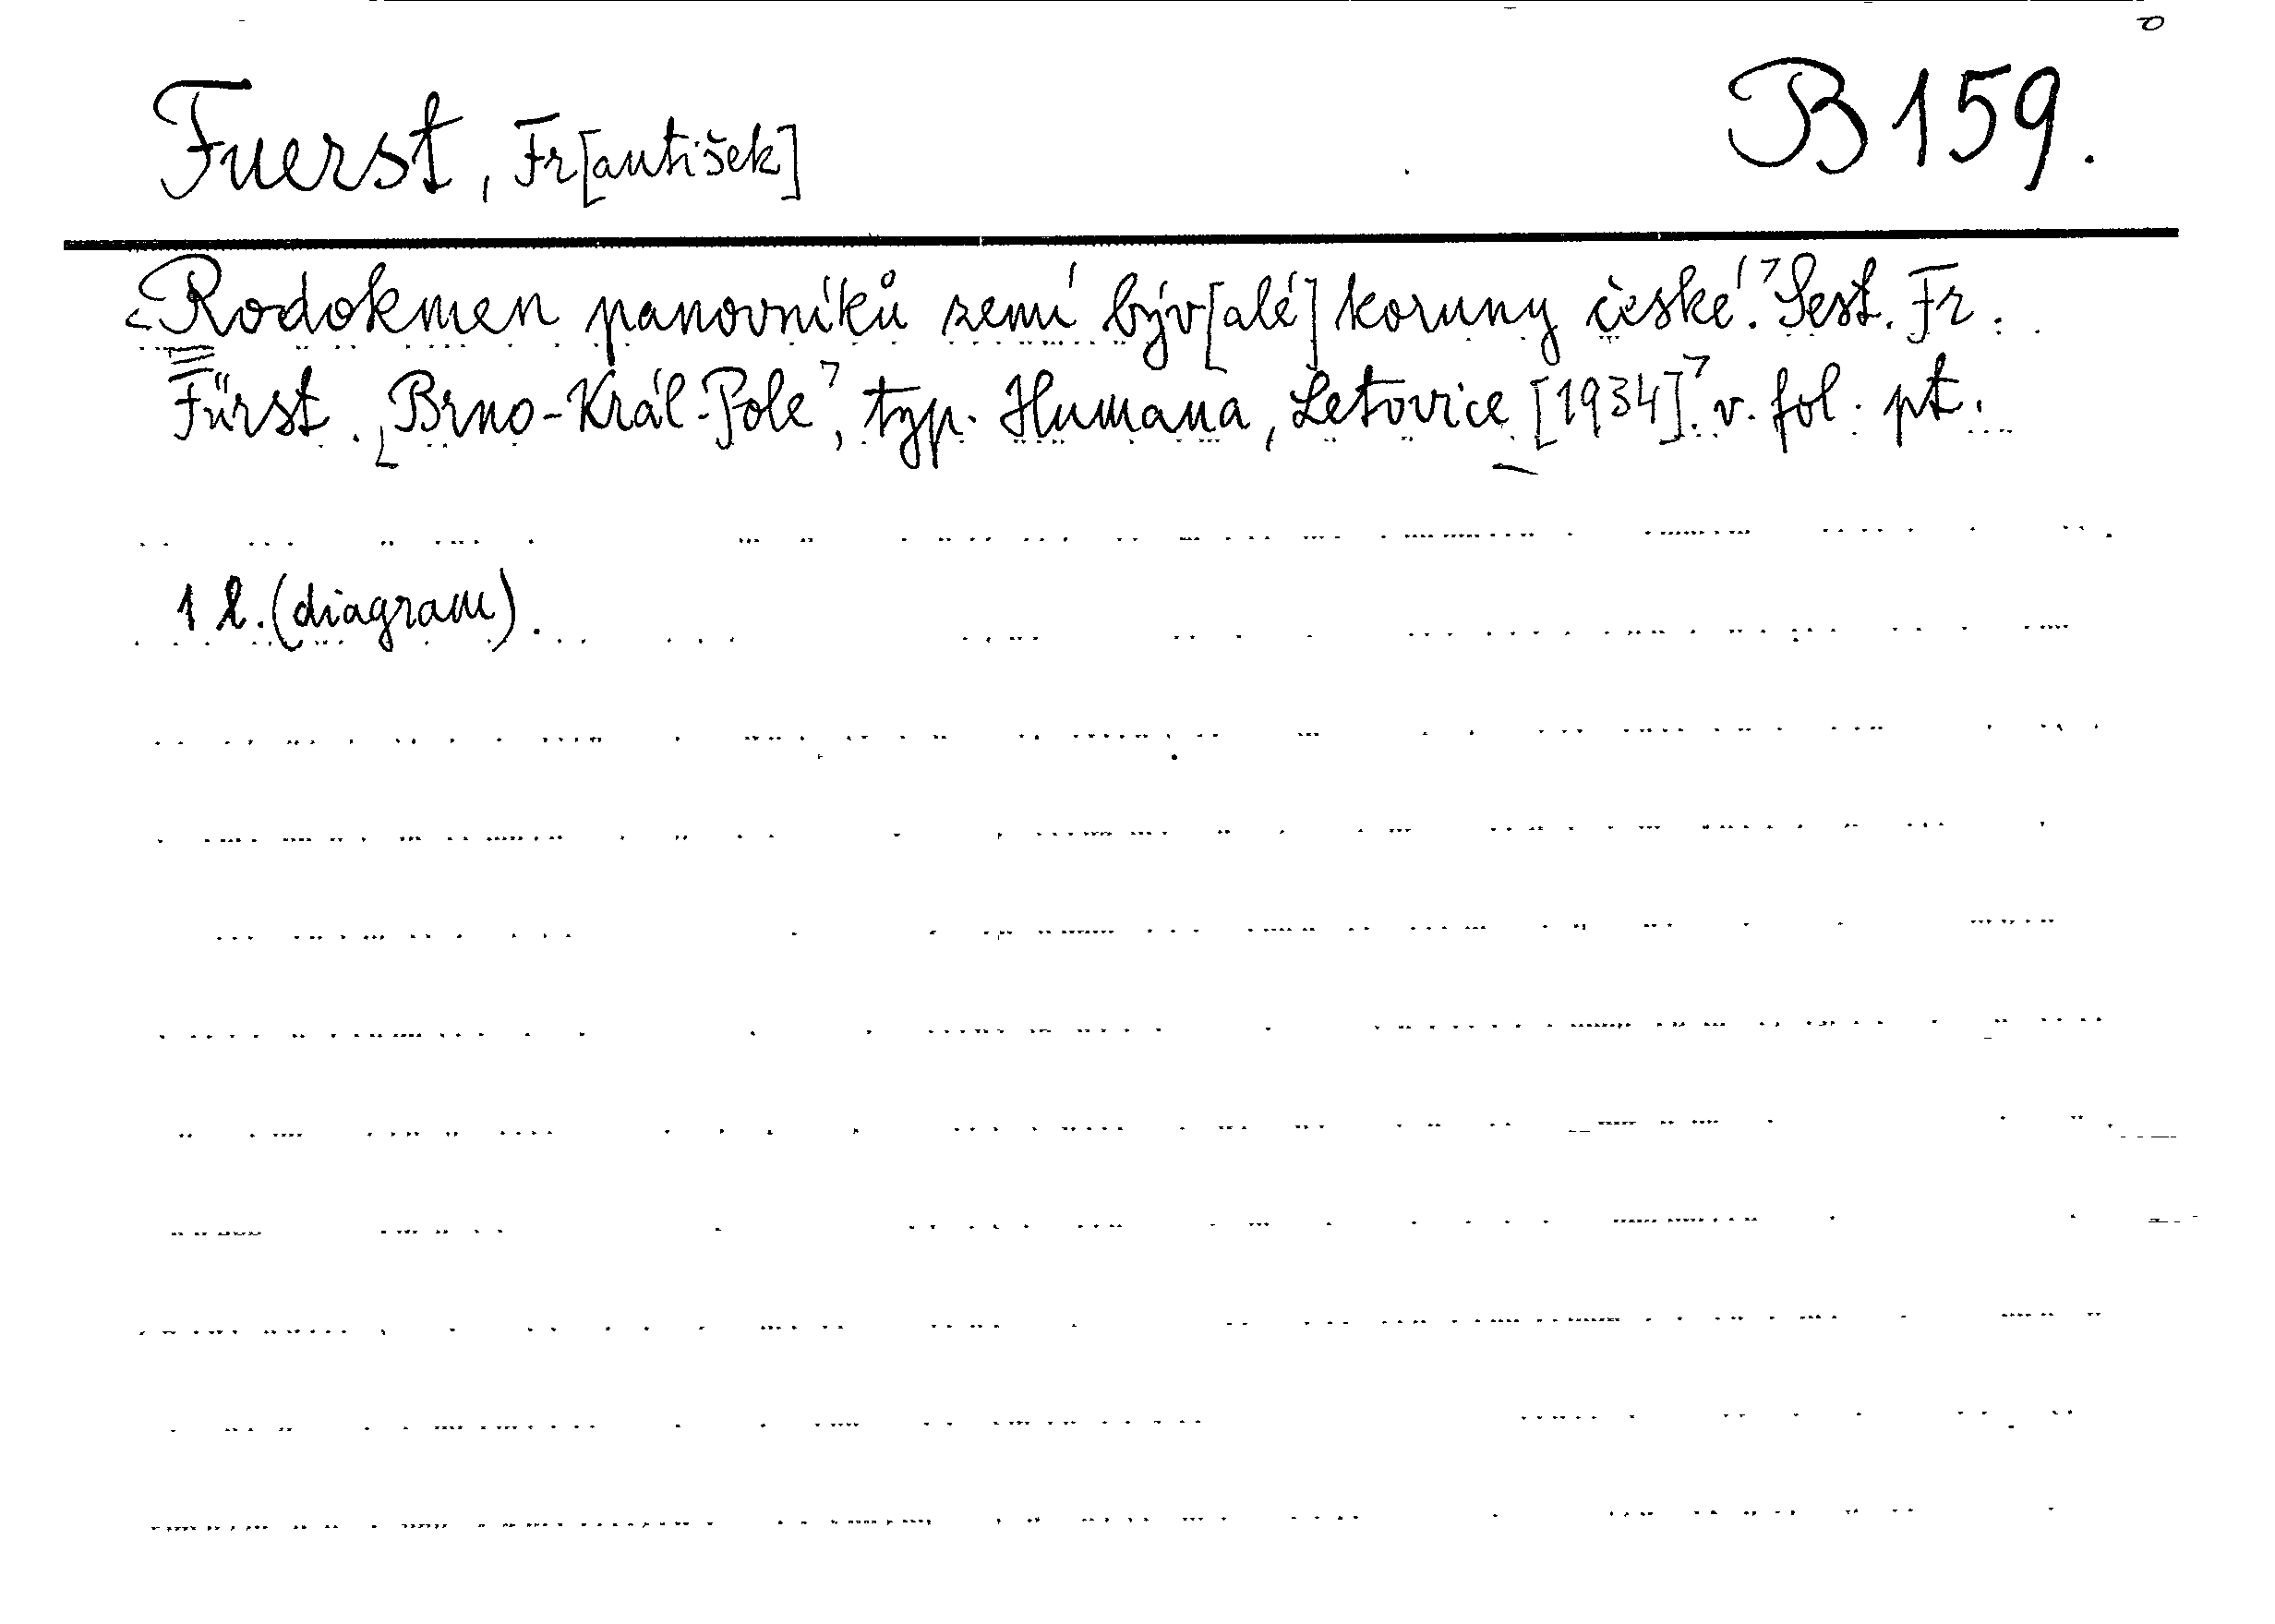 Fuerst, Fr[antišek]
B 159.
Rodokmen panovníků zemí býv[alé] koruny české. Sest. Fr.
Fürst. Brno-Král-Pole, typ. Humana, Letovice [1934]. v. fol. pt.
1 l. (diagram).